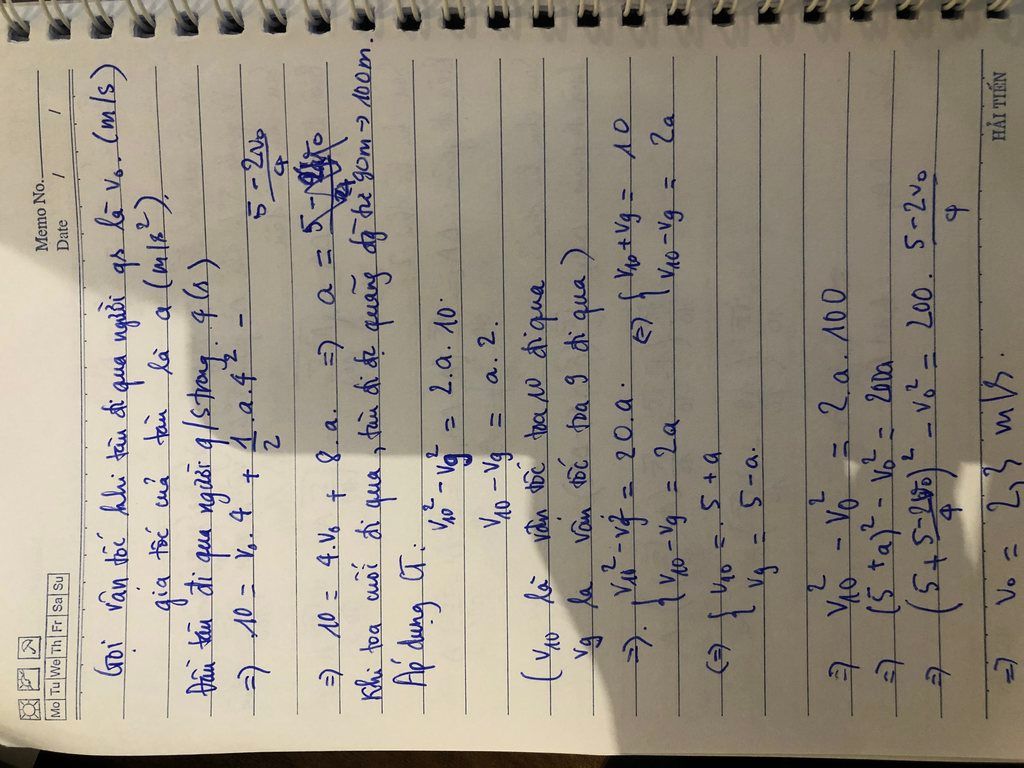 Memo No.
Date / /
Mo Tu We Th Fr Sa Su
Gọi vận tốc khi tàu đi qua người qs là v₀. (m/s)
gia tốc của tàu là a (m/s²).
Đầu tàu đi qua người q/s trong 4 (s)
=> 10 = v₀.4 + 1/2 .a.4² -
=> 10 = 4.v₀ + 8.a. => a = (5 - 2v₀)/4
Khi toa cuối đi qua, tàu đi đc quãng đg từ 90m → 100m.
Áp dụng CT: v₁₀² - v₉² = 2.a.10.
v₁₀ - v₉ = a.2.
(v₁₀ là vận tốc toa 10 đi qua
v₉ là vận tốc toa 9 đi qua)
=>. { v₁₀² - v₉² = 20.a. (=) { v₁₀ + v₉ = 10
v₁₀ - v₉ = 2a v₁₀ - v₉ = 2a
(=) { v₁₀ = 5 + a
v₉ = 5 - a.
=> v₁₀² - v₀² = 2.a.100
=> (5 + a)² - v₀² = 200a
=> (5 + (5 - 2v₀)/4)² - v₀² = 200. (5 - 2v₀)/4
=> v₀ = 2,3 m/s.
HẢI TIẾN